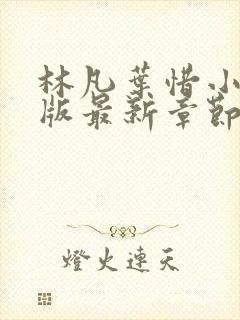 林凡葉惜小
版最新章節
燈火連天